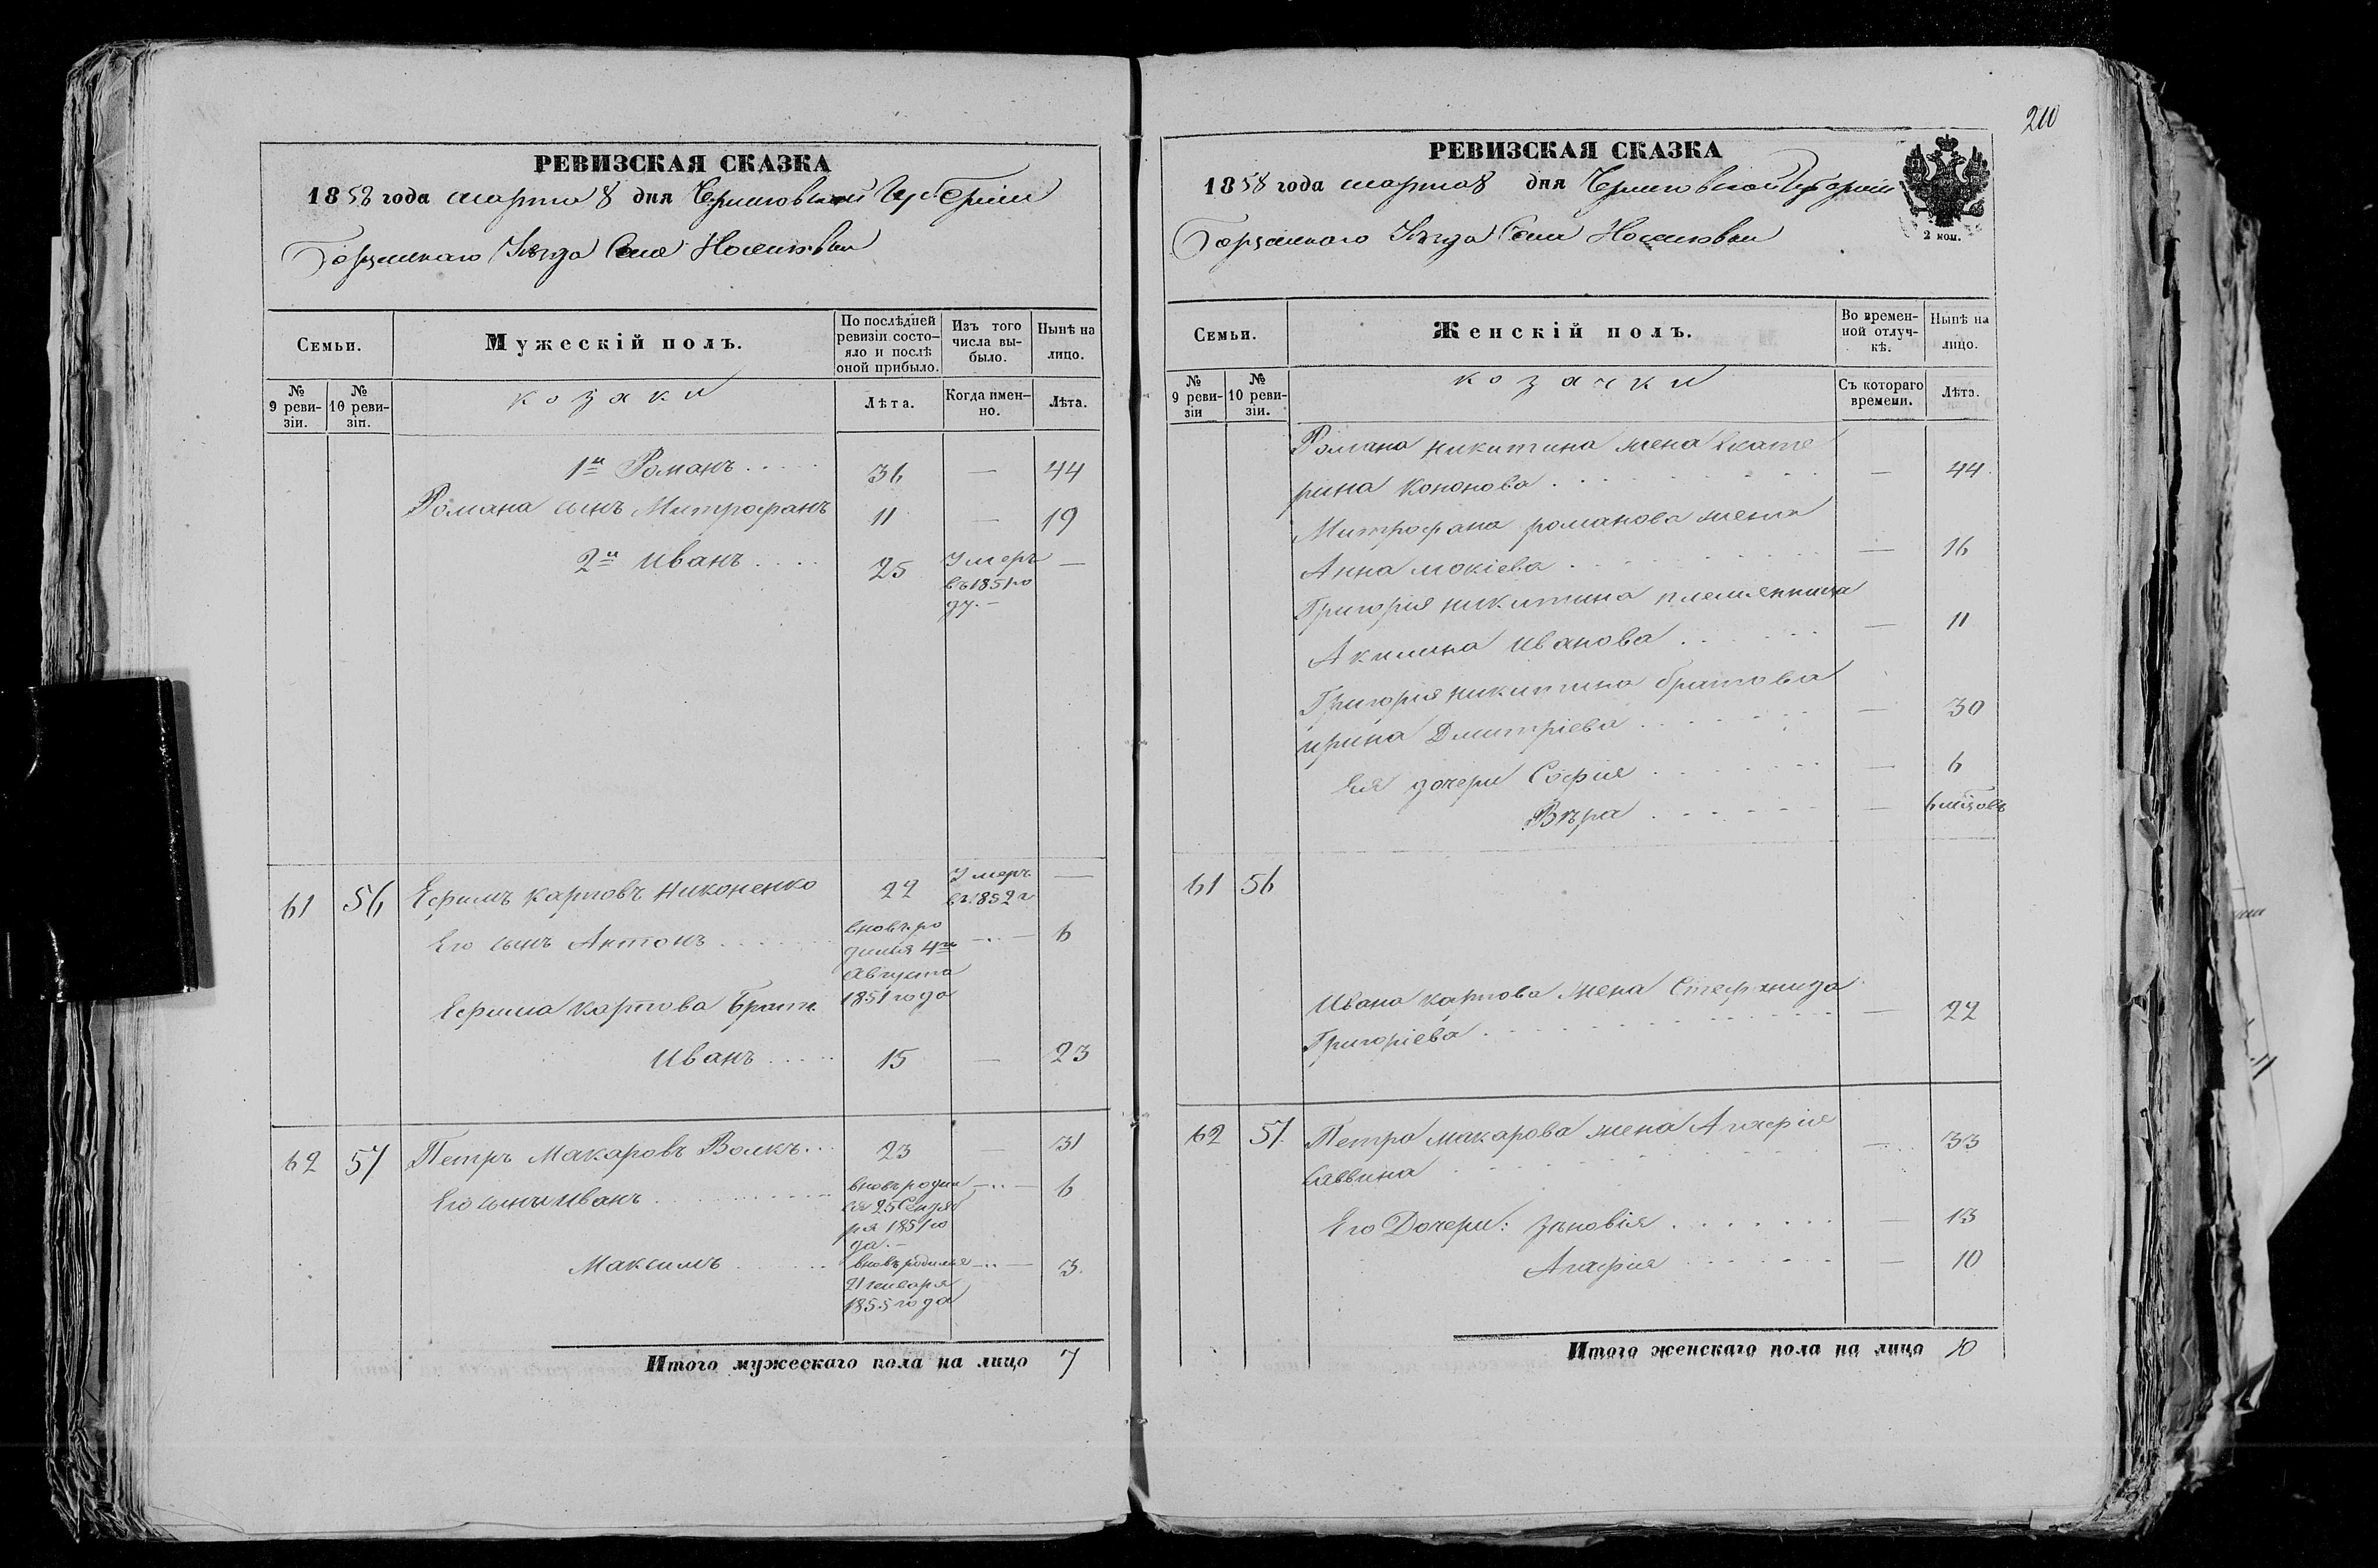 РЕВИЗСКАЯ СКАЗКА
1858 года марта 8 дня Черниговской Губернiи
Борзенскаго Уѣзда Села Носиловки
Семьи.
Мужескiй полъ.
По послѣдней ревизiи состо-
яло и послѣ
оной прибыло.
Изъ того
числа вы-
было.
Нынѣ на
лицо.
№
9 реви-
зiи.
№
10 реви-
зiи.
козаки
Лѣта.
Когда имен-
но.
Лѣта.
1й Романъ 36 — 44
Романа сынъ Митрофанъ 11 — 19
2й Иванъ 25 Умеръ —
въ 1851 го
ду.
61 56 Ефимъ Карповъ Никоненко 22 Умеръ —
въ 1852 г
Его сынъ Антонъ вновь ро — 6
дился 4го
Августа
1851 года
Ефима Карпова братъ
Иванъ 15 — 23
62 57 Петръ Макаровъ Волкъ 23 — 31
Его сыны Иванъ вновь роди — 6
ся 25 Сентяб
ря 1851 го
да.
Максимъ вновь родился — 3
21 генваря
1855 года
Итого мужескаго пола на лицо 7
210
РЕВИЗСКАЯ СКАЗКА
1858 года марта 8 дня Черниговской Губернiи
Борзенскаго Уѣзда Села Носиловки
2 коп.
Семьи.
Женскiй полъ.
Во времен-
ной отлуч-
кѣ.
Нынѣ на
лицо.
№
9 реви-
зiи
№
10 реви-
зiи.
козачки
Съ котораго
времени.
Лѣта.
Романа Никитина жена Екате
рина Кононова — 44
Митрофана Романова жена
Анна Мокiева — 16
Григорiя Никитина племенница
Акилина Иванова — 11
Григорiя Никитина братова
Ирина Дмитрiева — 30
Ея дочери София — 6
Вѣра — 6 мѣсяцовъ
61 56
Ивана Карпова жена Стефанида
Григорiева — 22
62 57. Петра Макарова жена Агафiя
Саввина — 33
Его Дочери: Зѣновiя — 13
Агафия — 10
Итого женскаго пола на лицо 10